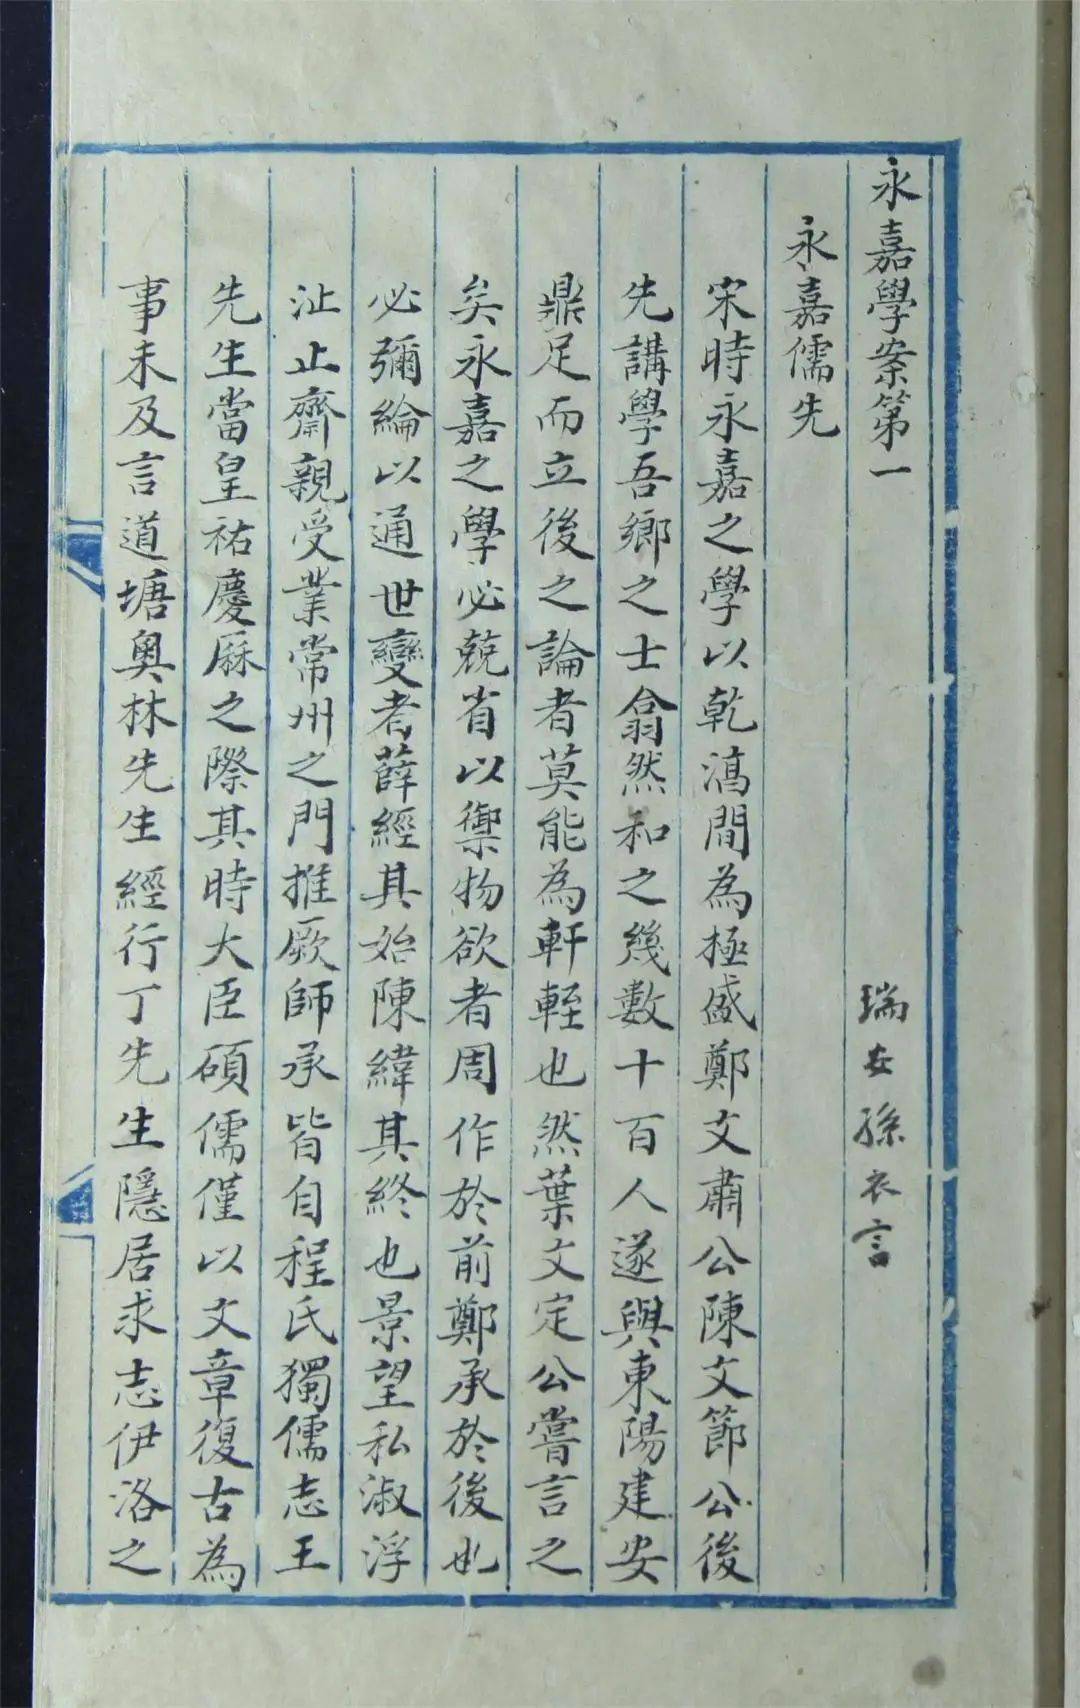 永嘉學案第一
瑞安孫衣言
永嘉儒先
宋時永嘉之學以乾淳間為極盛鄭文肅公陳文節公後
先講學吾鄉之士翕然和之幾數十百人遂與東陽建安
鼎足而立後之論者莫能為軒輊也然葉文定公嘗言之
矣永嘉之學必兢省以禦物欲者周作於前鄭承於後也
必彌綸以通世變者薛經其始陳緯其終也景望私淑浮
沚止齋親受業常州之門推厥師承皆自程氏獨儒志王
先生當皇祐慶厤之際其時大臣碩儒僅以文章復古為
事未及言道塘奧林先生經行丁先生隱居求志伊洛之